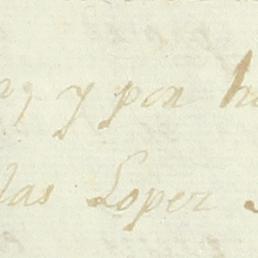 y por
las Lopez